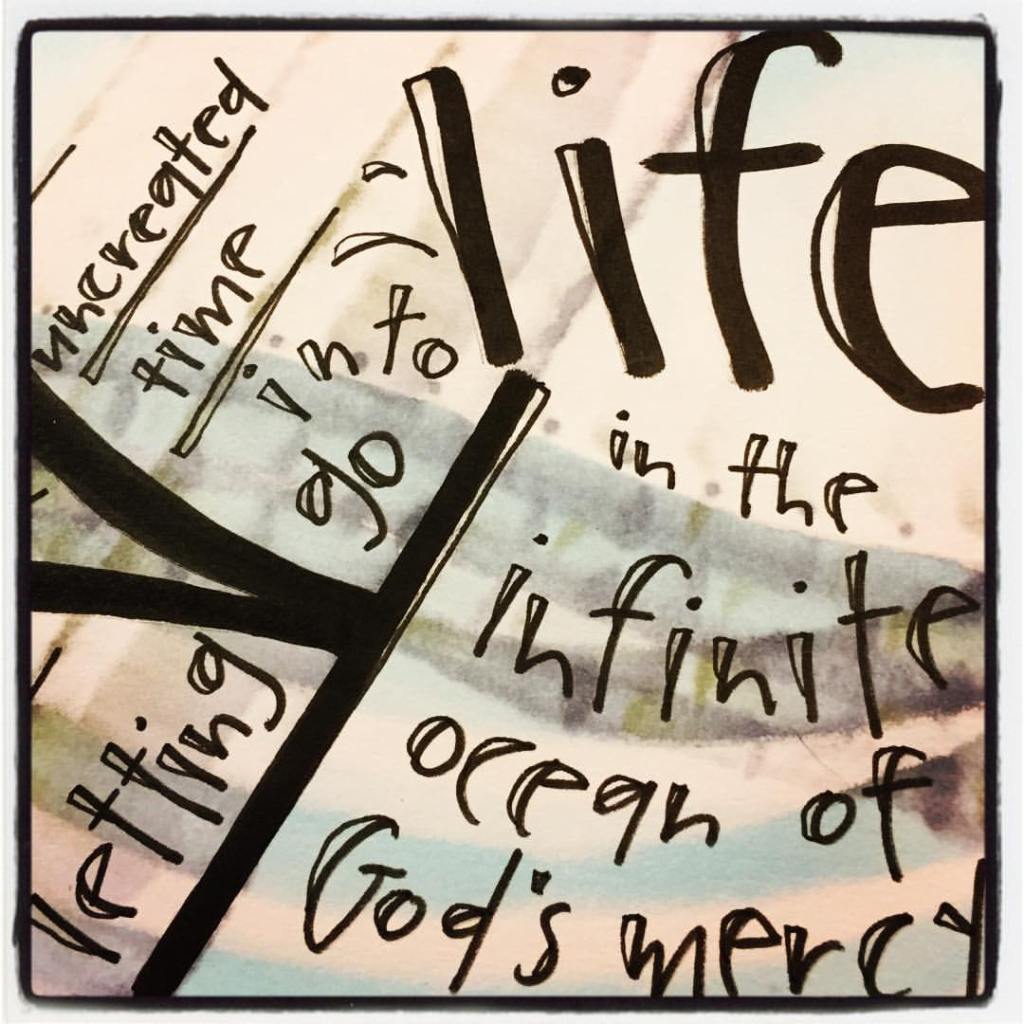 uncreated
time
into
go
letting
life
in the
infinite
ocean of
God's mercy